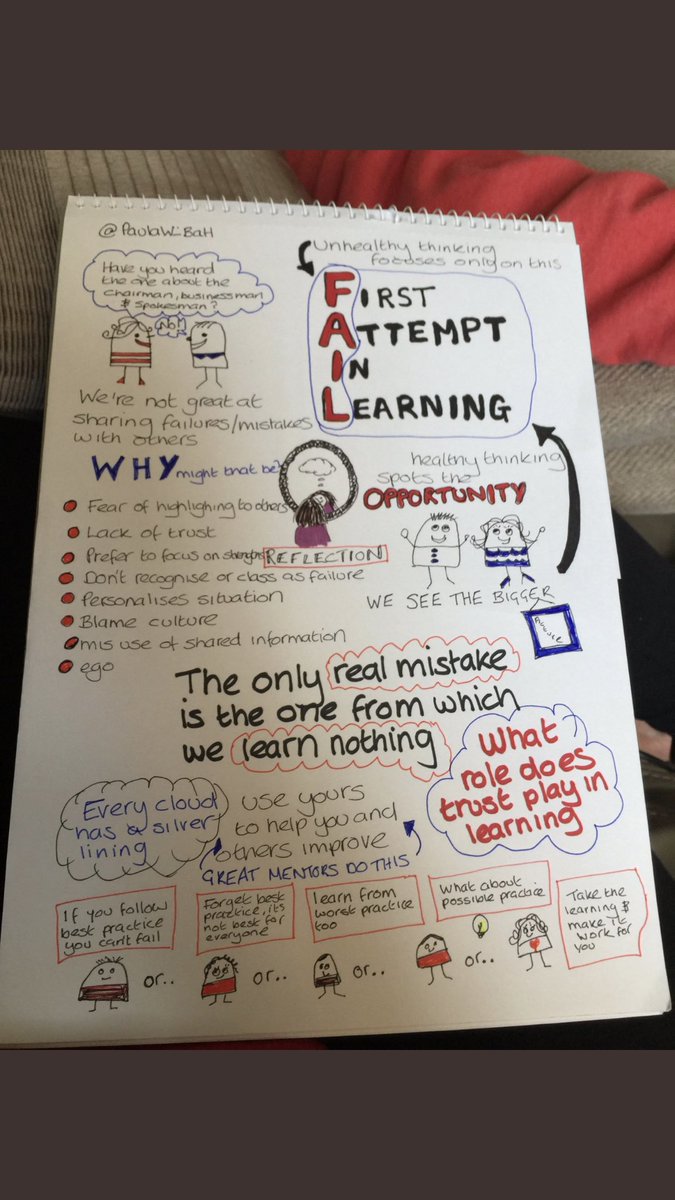 @PaulaW_BaH
Have you heard
the one about the
Chairman, businessman
& Spokesman?
No!
We're not great at
sharing failures/mistakes
with others
Unhealthy thinking
focuses only on this
FIRST
ATTEMPT
IN
LEARNING
WHY might that be?
Fear of highlighing to others
Lack of trust
Prefer to focus on strengths
REFLECTION
Don't recognise or class as failure
Personalises situation
Blame culture
mis use of shared information
ego
healthy thinking
spots the
OPPORTUNITY
WE SEE THE BIGGER
picture
The only real mistake
is the one from which
we learn nothing
What
role does
trust play in
learning
Every cloud
has a silver
lining
use yours
to help you and
others improve
GREAT MENTORS DO THIS
If you follow
best practice
you can't fail
or..
Forget best
practice, it's
not best for
everyone
or..
learn from
worst practice
too
or..
What about
possible practice
or..
Take the
learning &
make it
work for
you